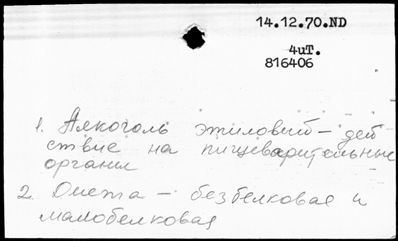 14.12.70.ND
4иТ.
816406
1. Алкоголь этиловый – дей
ствие на пищеварительные
органы
2. Диета – безбелковая и
малобелковая